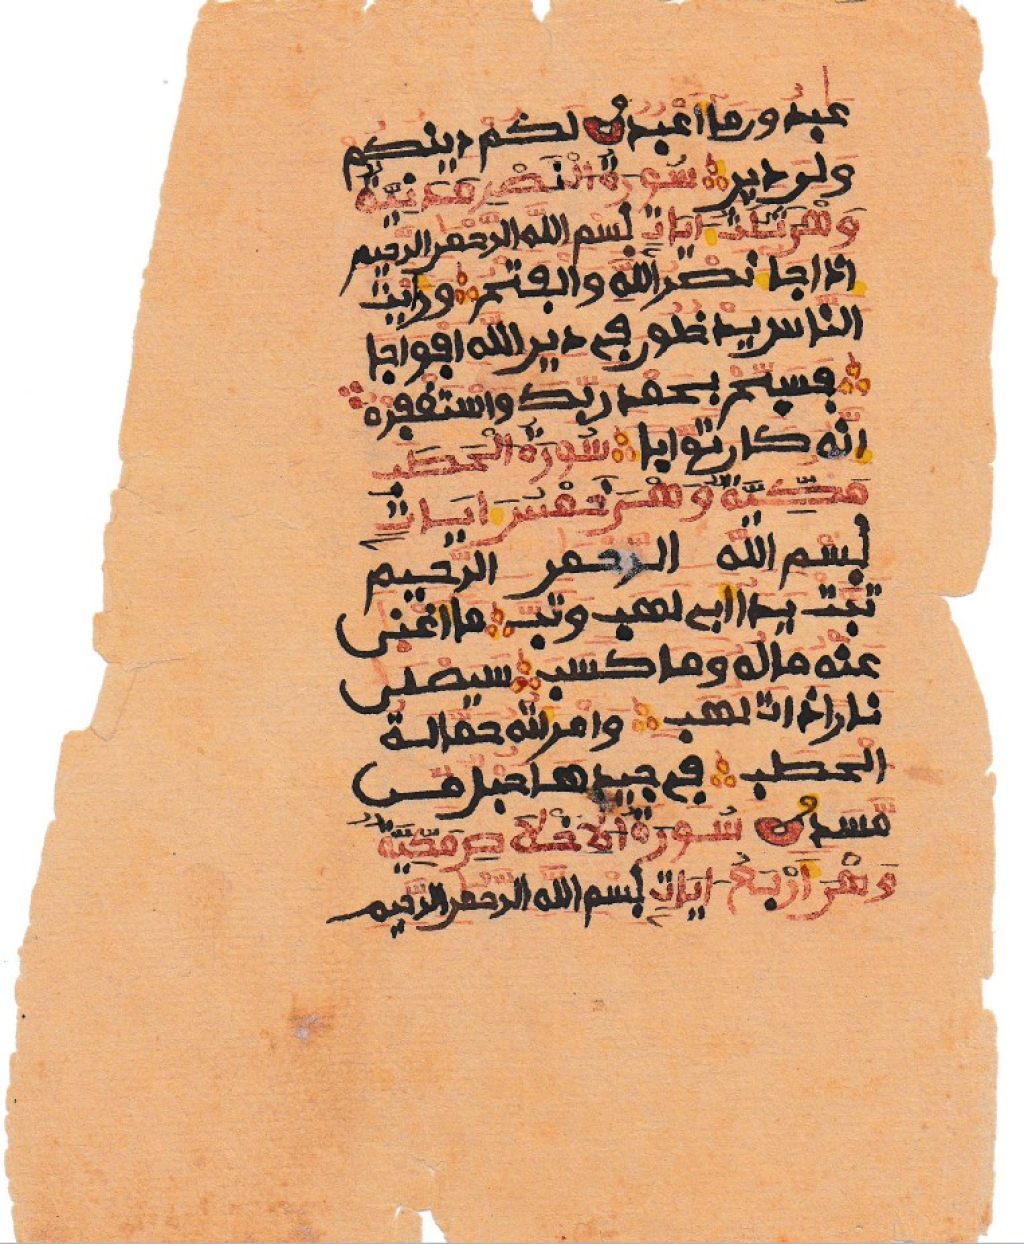 عبدون ما اعبد لكم دينكم
ولى دين سورة النصر مدنية
وهى ثلث ايات بسم الله الرحمن الرحيم
اذا جا نصر الله والفتح ورايت
الناس يدخلون في دين الله افواجا
فسبح بحمد ربك واستغفره
انه كان توابا سورة الحطب
مكية وهى خمس ايات
بسم الله الرحمن الرحيم
تبت يدا ابي لهب وتب ما اغنى
عنه ماله وما كسب سيصلى
نارا ذات لهب وامراته حمالة
الحطب في جيدها حبل من
مسد سورة الاخلاص مكية
وهى اربع ايات بسم الله الرحمن الرحيم